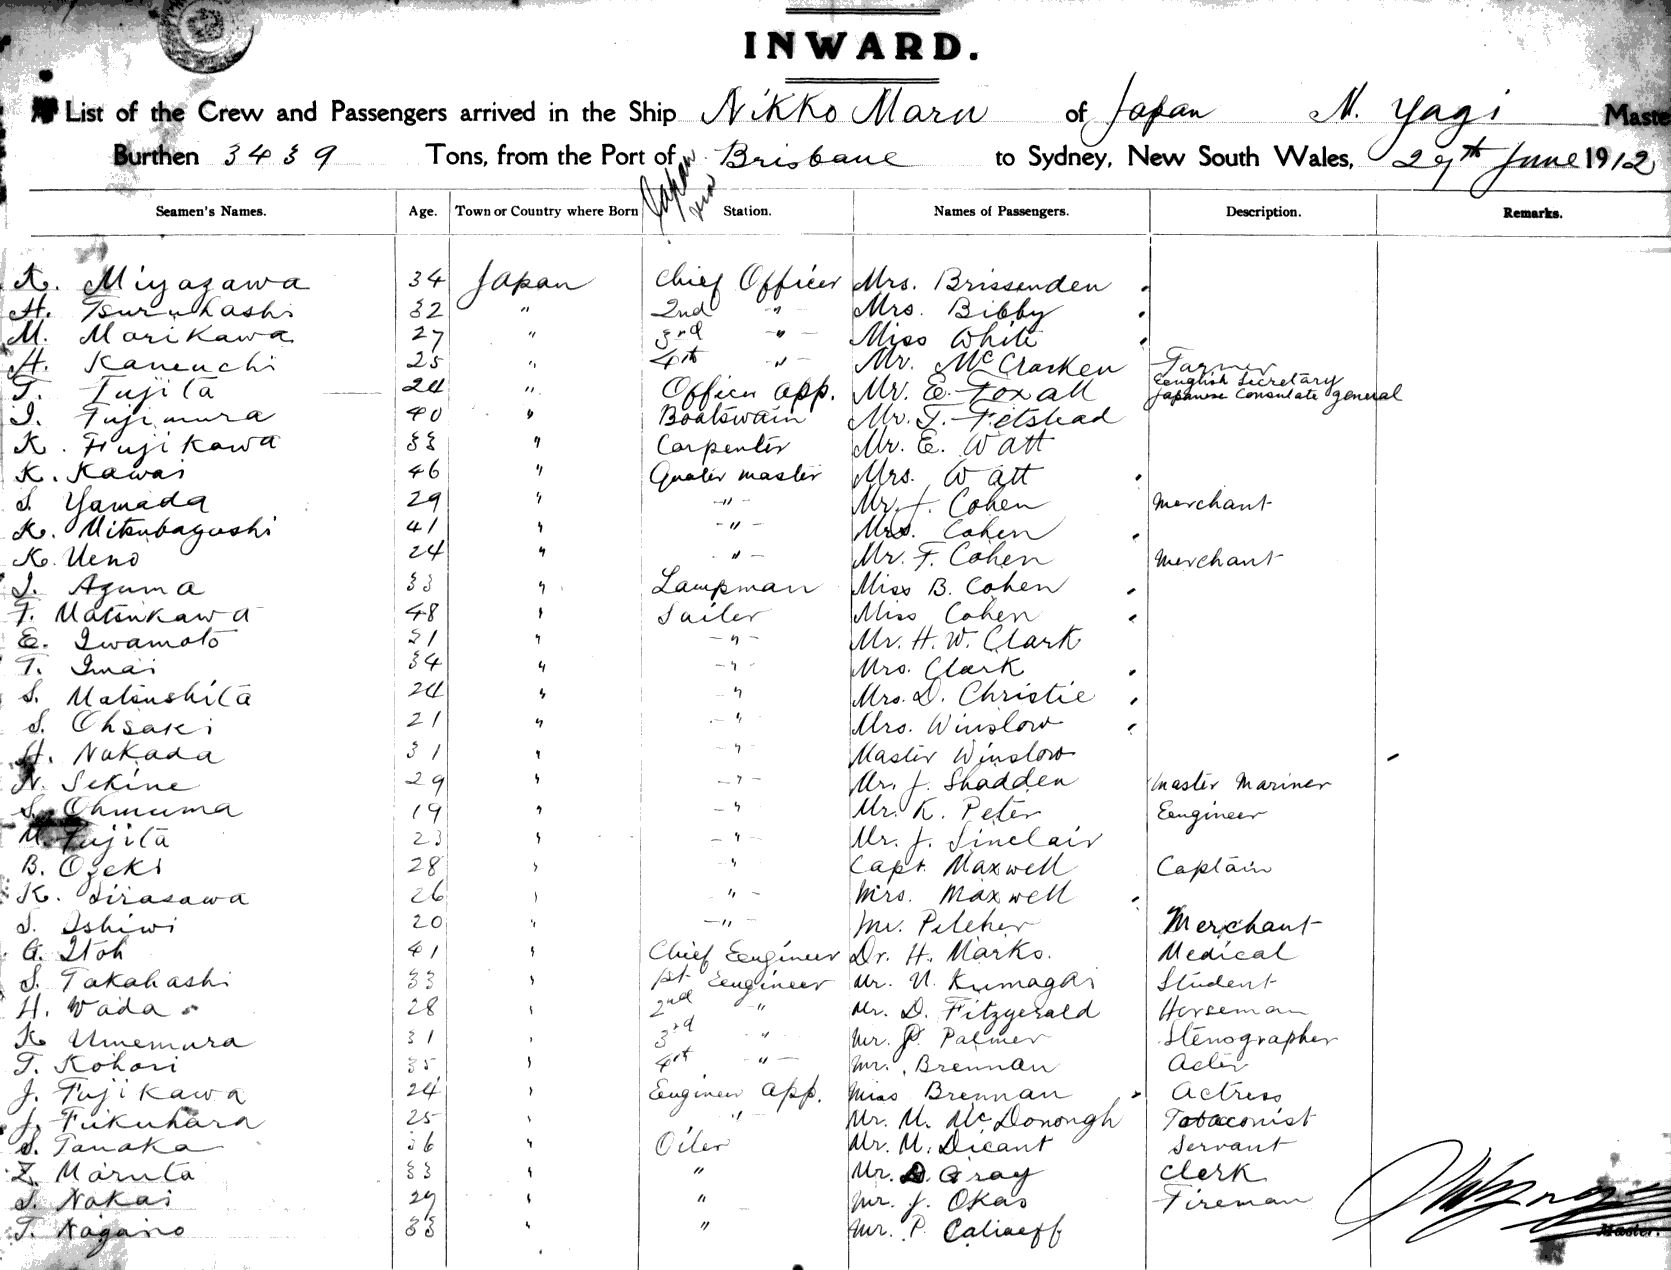 INWARD.
List of the Crew and Passengers arrived in the Ship Nikko Maru of Japan N. Yagi Maste
Burthen 3439 Tons, from the Port of Japan via Brisbane to Sydney, New South Wales, 29th June 1912
Seamen's Names. Age. Town or Country where Born Station. Names of Passengers. Description. Remarks.
K. Miyazawa 34 Japan Chief Officer Mrs. Brissenden
H. Tsuruhashi 32 " 2nd " Mrs. Bibby
M. Morikawa 27 " 3rd " Miss White
H. Kaneuchi 25 " 4th " Mr. McCracken Farmer
T. Fujita 24 " Officer app. Mr. E. Foxall English Secretary Japanese Consulate general
I. Fujimura 40 " Boatswain Mr. T. Fitshead
K. Fujikawa 33 " Carpenter Mr. E. Watt
K. Kawai 46 " Quater master Mrs. Watt
S. Yamada 29 " " Mr. J. Cohen merchant
K. Mitsubayashi 41 " " Mrs. Cohen
K. Ueno 24 " " Mr. F. Cohen merchant
I. Azuma 33 " Lampman Miss B. Cohen
F. Matsukawa 48 " Sailer Miss Cohen
E. Iwamoto 31 " " Mr. H. W. Clark
T. Imai 34 " " Mrs. Clark
S. Matsushita 24 " " Mrs. D. Christie
S. Ohsaki 21 " " Mrs. Winslow
H. Nakada 31 " " Master Winslow
N. Sekine 29 " " Mr. J. Shadden master mariner
S. Ohnuma 19 " " Mr. K. Peter Eengineer
M. Fujita 23 " " Mr. J. Sinclair
B. Ozeki 28 " " Capt. Maxwell Captain
K. Sirasawa 26 " " Mrs. Maxwell
S. Ishiwi 20 " " Mr. Pilcher Merchant
G. Itoh 41 " Chief Eengineer Dr. H. Marks. Medical
S. Takahashi 33 " 1st Eengineer Mr. N. Kumagai Student
H. Wada 28 " 2nd " Mr. D. Fitzgerald Horseman
K. Umemura 31 " 3rd " Mr. P. Palmer Stenographer
T. Kohori 35 " 4th " Mr. Brennan Acter
J. Fujikawa 24 " Eengineer app. Miss Brennan Actress
J. Fukuhara 25 " " Mr. M. McDonongh Tobaconist
S. Tanaka 36 " Oiler Mr. M. Dicant Servant
Z. Maruta 33 " " Mr. D. Gray Clerk
S. Nakai 29 " " Mr. J. Okas Fireman
T. Nagano 33 " " Mr. P. Caliaeff
Master.